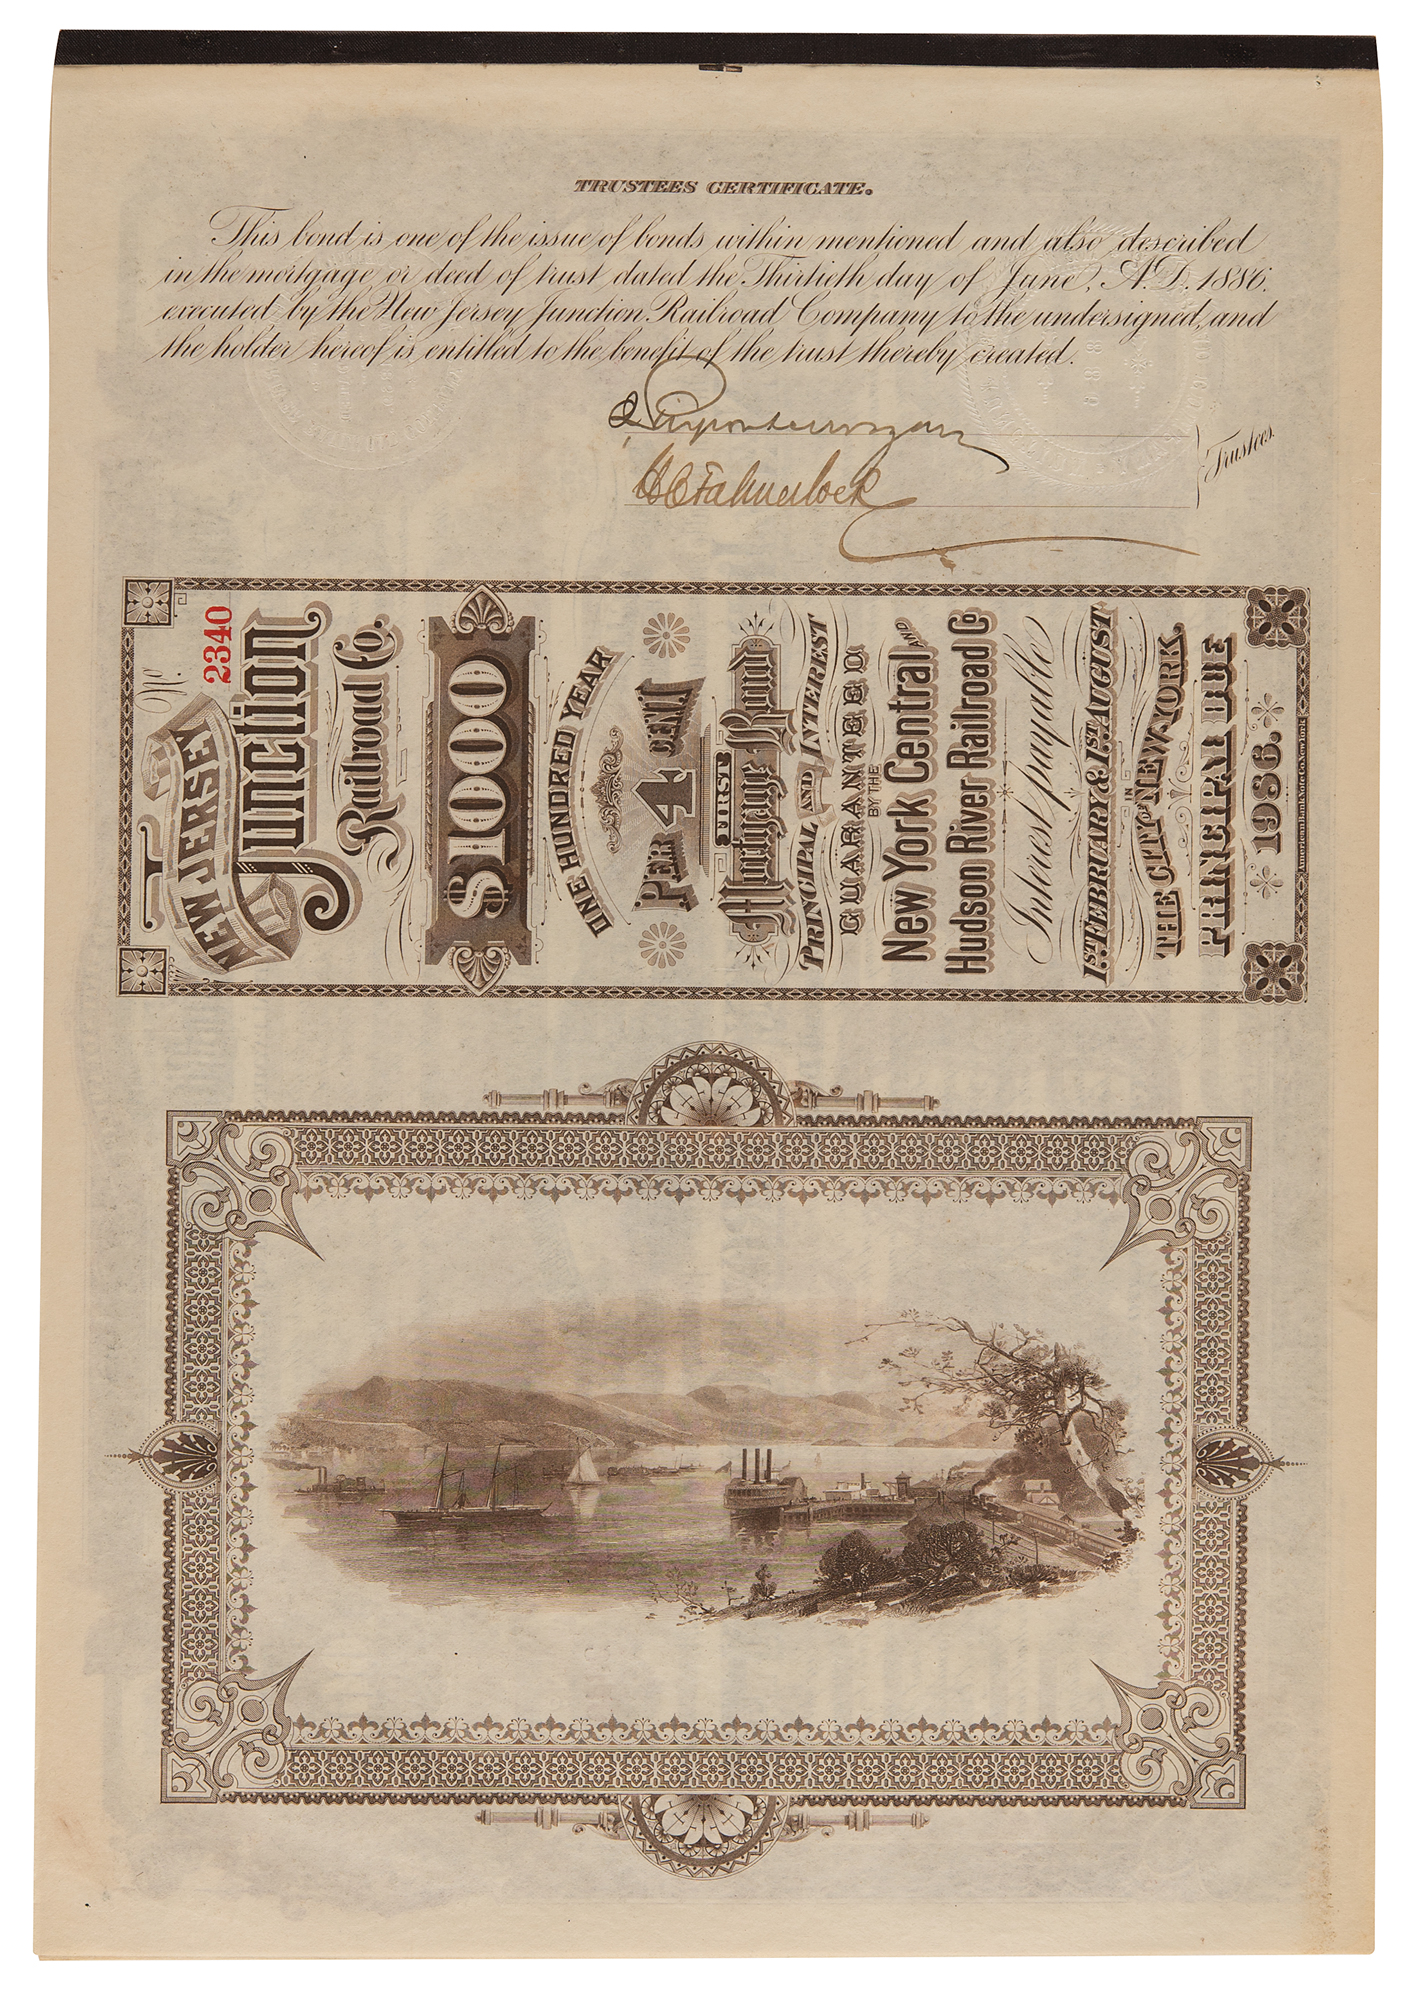 TRUSTEES CERTIFICATE.
This bond is one of the issue of bonds within mentioned and also described
in the mortgage or deed of trust dated the Thirtieth day of June, A.D. 1886,
executed by the New Jersey Junction Railroad Company to the undersigned, and
the holder hereof is entitled to the benefit of the trust thereby created.
J. Pierpont Morgan
H C Fahnestock
Trustees.
No. 2340
NEW JERSEY
Junction
Railroad Co.
$1000
ONE HUNDRED YEAR
PER 4 CENT
FIRST
Mortgage Bond
PRINCIPAL AND INTEREST
GUARANTEED
BY THE
New York Central AND
Hudson River Railroad Co
Interest payable
1ST FEBRUARY & 1ST AUGUST
IN
THE CITY OF NEW YORK.
PRINCIPAL DUE
1986.
American Bank Note Co. New York